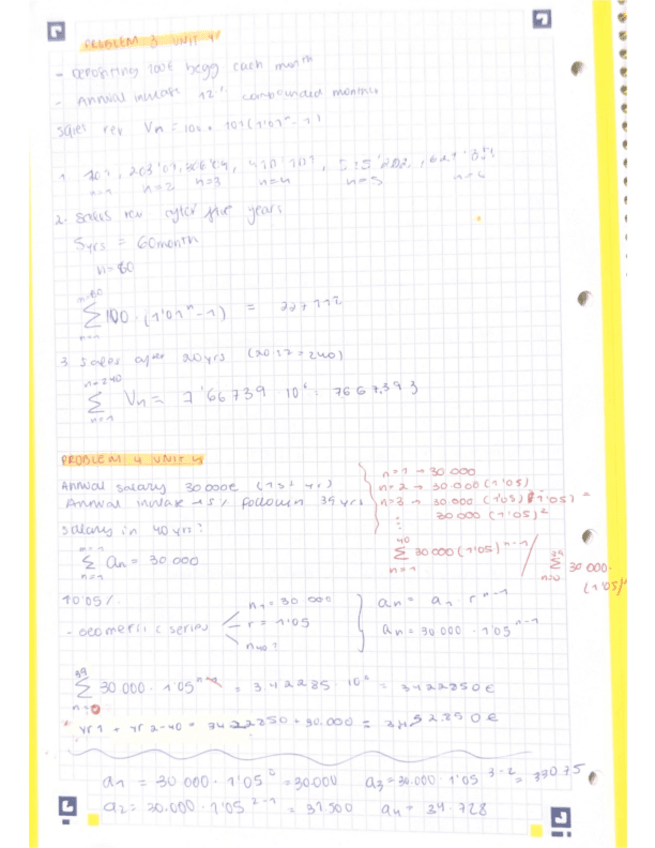 PROBLEM 3 UNIT 4
- Depositing 100€ begg each month
- Annual increase 12% compounded monthly
Sales rev Vn = 100 · 101(1'01ⁿ - 1)
1. 101, 203'01, 306'04, 410'101, 515'202, 621'351
n=1 n=2 n=3 n=4 n=5 n=6
2. Sales rev after five years
5yrs = 60month
n=60
n=60
∑ 100 · (1'01ⁿ - 1) = 227112
n=1
3. Sales after 20yrs (20·12 = 240)
n=240
∑ Vn = 7'66739 · 10⁶ = 7667393
n=1
PROBLEM 4 UNIT 4
Annual salary 30000€ (1st yr)
Annual increase 5% followin 39 yrs
Salary in 40 yrs?
∑ an = 30.000
n=1
n=1 → 30.000
n=2 → 30.000 (1'05)
n=3 → 30.000 (1'05) (1'05) =
30.000 (1'05)²
⋮
40
∑ 30000 (1'05)ⁿ⁻¹ /
n=1
39
∑ 30 000 ·
n=0
- Geometric series
n₁ = 30 000
r = 1'05
n₄₀?
an = a₁ · rⁿ⁻¹
an = 30 000 · 1'05ⁿ⁻¹
39
∑ 30.000 · 1'05ⁿ = 3.42285 · 10⁶ = 3422850€
yr 1 + yr 2-40 = 3422850 + 30.000 = 3452850€
a₁ = 30.000 · 1'05⁰ = 30.000 a₃ = 30.000 · 1'05 = 33075
a₂ = 30.000 · 1'05²⁻¹ = 31.500 a₄ = 34.728